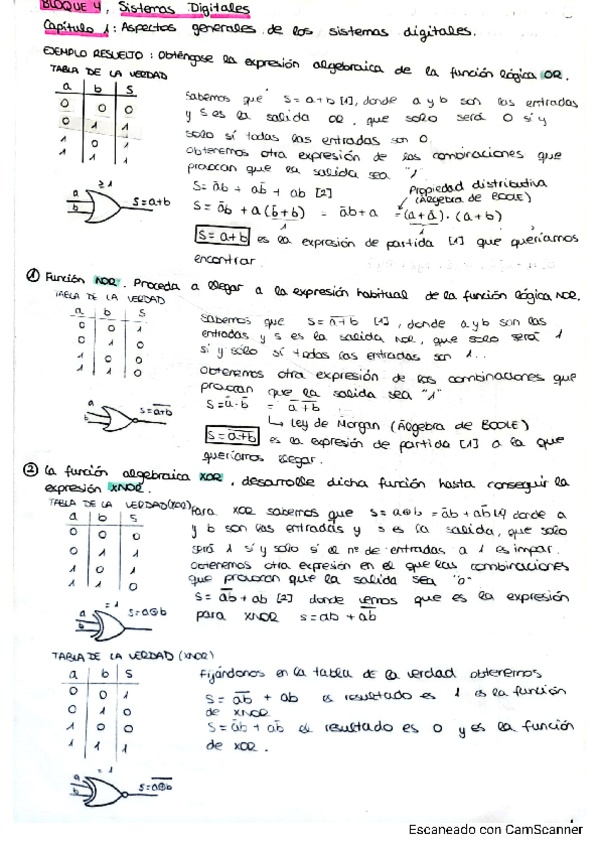 BLOQUE 4. Sistemas Digitales
Capítulo 1: Aspectos generales de los sistemas digitales.
EJEMPLO RESUELTO: Obténgase la expresión algebraica de la función lógica OR.
TABLA DE LA VERDAD
a b S
0 0 0
0 1 1
1 0 1
1 1 1
≥1
a
b
S=a+b
Sabemos que S=a+b [1], donde a y b son las entradas
y S es la salida OR, que solo será 0 sí y
solo sí todas las entradas son 0.
obteremos otra expresión de las combinaciones que
provocan que la salida sea "1"
S= āb + ab̄ + ab [2]
Propiedad distributiva
(Álgebra de BOOLE)
S= āb + a(b̄+b) = āb+a = (a+ā)·(a+b)
1 1
S=a+b es la expresión de partida [1] que queríamos
encontrar.
① Función NOR. Proceda a llegar a la expresión habitual de la función lógica NOR.
TABLA DE LA VERDAD
a b S
0 0 1
0 1 0
1 0 0
1 1 0
a
b
S=a+b
Sabemos que S=a+b [1], donde a y b son las
entradas y s es la salida NOR, que solo será 1
sí y sólo sí todas las entradas son 1...
Obteremos otra expresión de las combinaciones que
provocan que la salida sea "1"
S=ā·b̄ = a+b
↳ Ley de Morgan (Álgebra de BOOLE)
S=a+b es la expresión de partida [1] a la que
queríamos llegar.
② La función algebraica XOR, desarrolle dicha función hasta conseguir la
expresión XNOR.
TABLA DE LA VERDAD (XOR)
a b S
0 0 0
0 1 1
1 0 1
1 1 0
=1
a
b
S=a⊕b
Para XOR sabemos que S=a⊕b = āb + ab̄ [1] donde a
y b son las entradas y s es la salida, que solo
será 1 sí y solo sí el nº de entradas a 1 es impar.
obteremos otra expresión en el que las combinaciones
que provocan que la salida sea "0"
S= āb̄ + ab [2] donde vemos que es la expresión
para XNOR s=ab + āb̄
TABLA DE LA VERDAD (XNOR)
a b S
0 0 1
0 1 0
1 0 0
1 1 1
=1
a
b
S=a⊕b
Fijándonos en la tabla de la verdad obteremos
S= āb̄ + ab el resultado es 1 es la función
de XNOR
S= āb + ab̄ el resultado es 0 y es la función
de XOR.
Escaneado con CamScanner